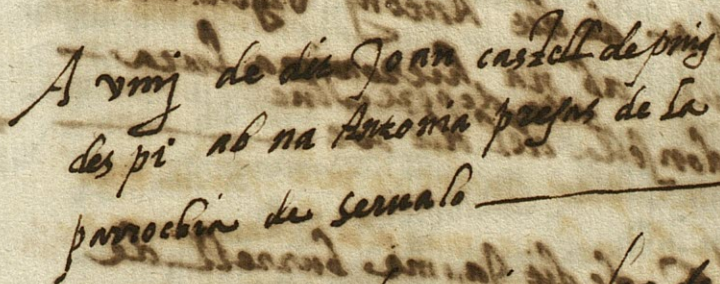 A viiij de dit Joan castell de puig
des pi ab na Antonia presas de la
parrochia de servalo